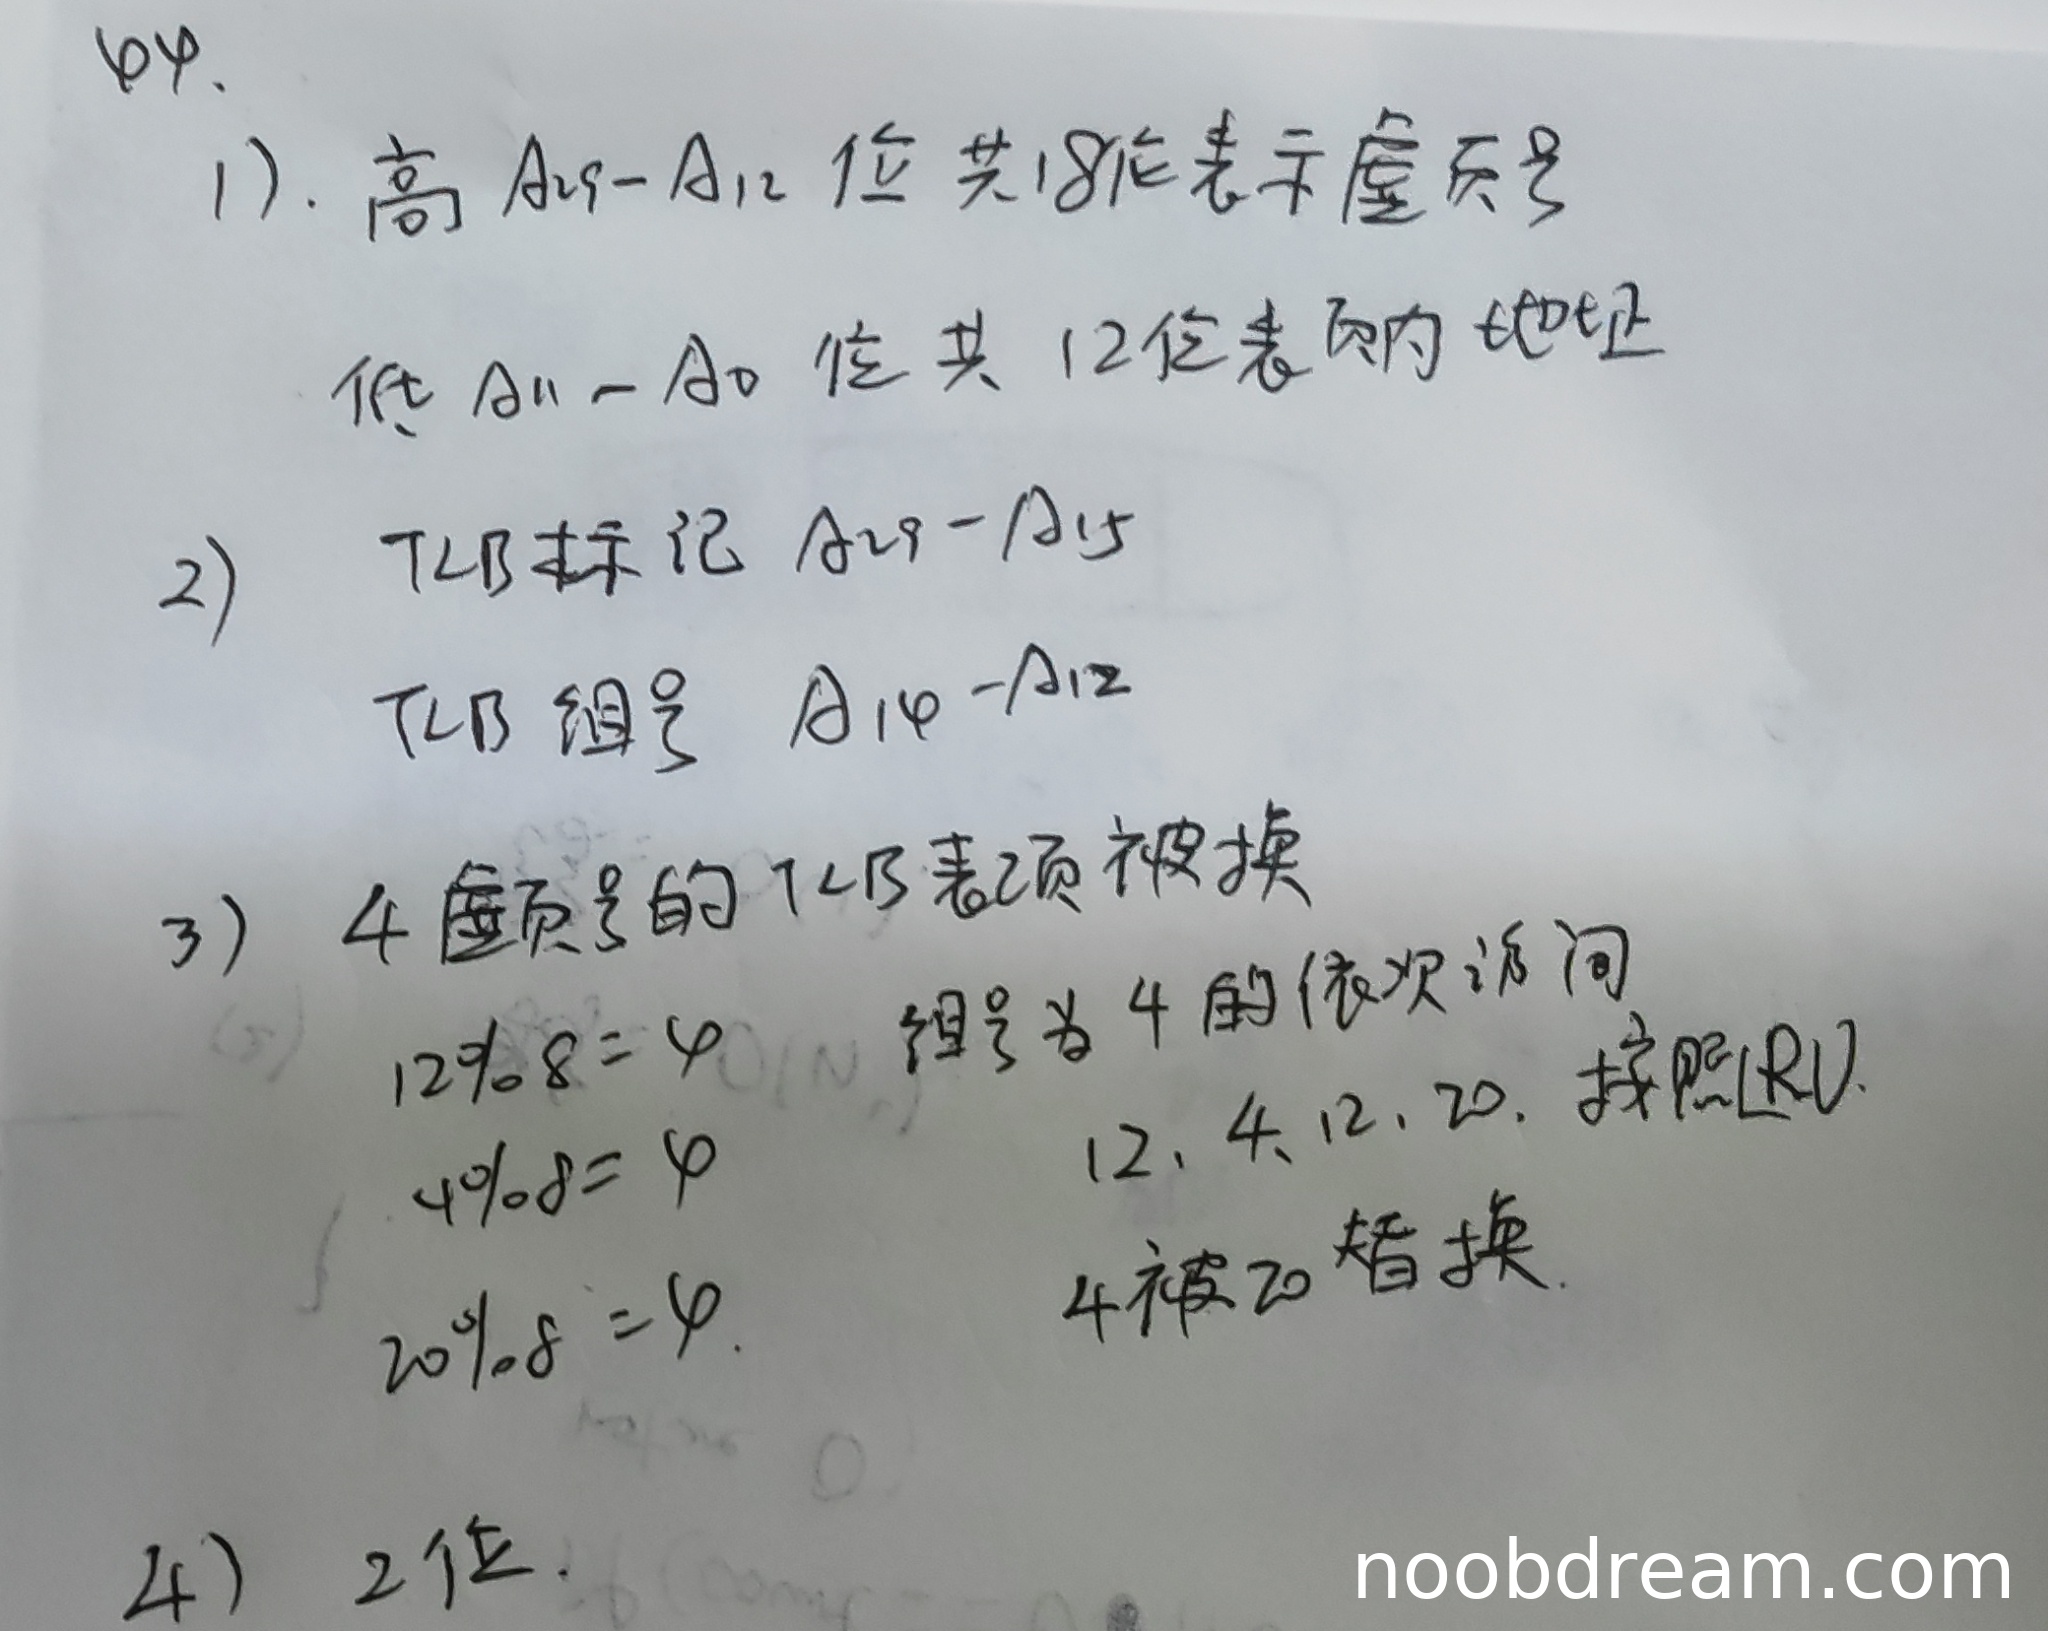 44.
1). 高 A29-A12 位 共18位表示虚页号
低 A11-A0 位 共 12位表页内地址
2) TLB标记 A29-A15
TLB 组号 A14-A12
3) 4虚页号的TLB表项被换
12%8=4 组号为4的依次访问
4%8=4 12、4、12、20. 按照LRU.
20%8=4. 4被20替换.
4) 2位.
noobdream.com